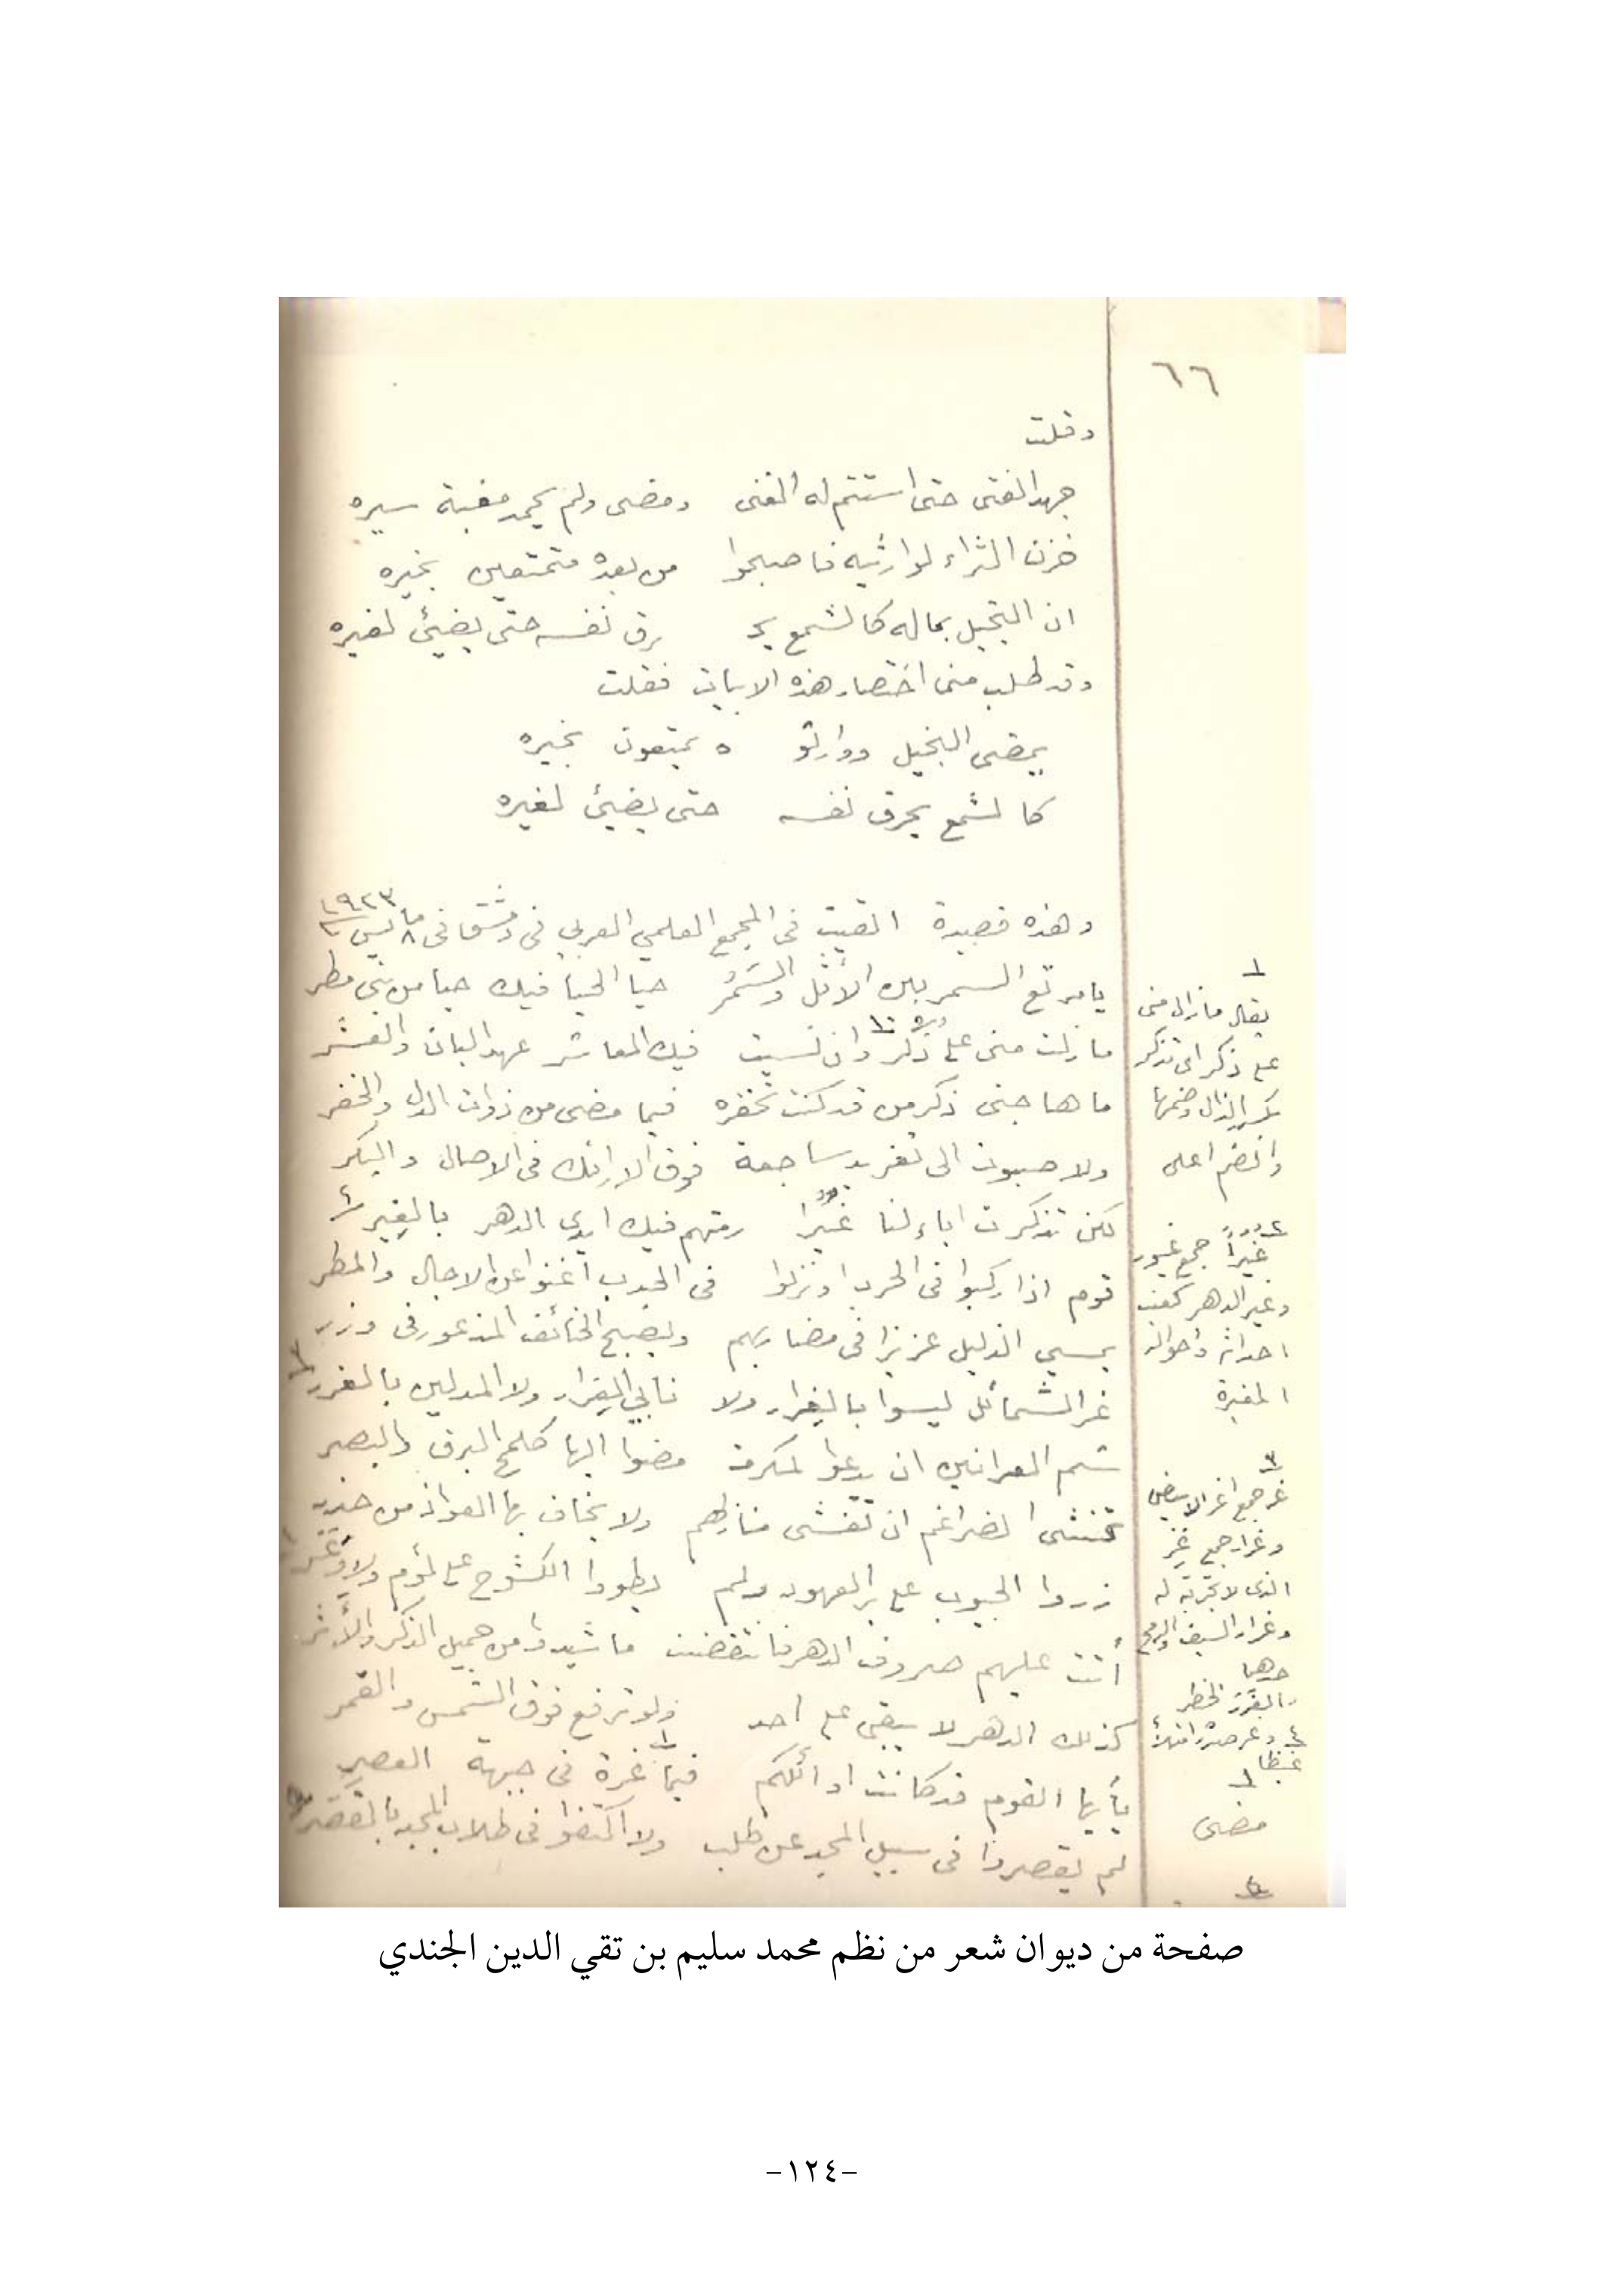 ٦٦
وقلت
جهد الفتى حتى استتم له الغنى ومضى ولم يحمد مغبة سيره
خزن الثراء لوارثيه فاصبحوا من بعده متمتعين بخيره
ان البخيل بماله كالشمع يحـ ـرق نفسه حتى يضيئ لغيره
وقد طلب مني اختصار هذه الابيات فقلت
يمضي البخيل ووارثو ه يمتعون بخيره
كالشمع يحرق نفسه حتى يضيئ لغيره
وهذه قصيدة القيت في المجمع العلمي العربي في دمشق في ٨ ١٩٢٣
يا مرتع السمر بين الأثل والسَّمُر حيا الحيا فيك حيا من بني مطر
ما زلت مني على ذكر وان نسيت فيك المعاشر عهد البان والعشر
ما هاجني ذكر من قد كنت تخفره فيما مضى من ذوات الدل والخفر
ولا صبوت الى تغريد ساجعة فوق الارائك في الاصال والبكر
لكن تذكرت اباء لنا غُيُرًا رمتهم فيك ايدي الدهر بالغِيَر
قوم اذا ركبوا في الحرب او نزلوا في الجدب اغنوا عن الاجال والمطر
يمسي الذليل عزيزا في مضاربهم ويصبح الخائف المذعور في وزر
غر الشمائل ليسوا بالغرار ولا نابي الغرار ولا المدلين بالغرر
شم العرانين ان يدعوا لمكرمة مضوا اليها كلمح البرق والبصر
تخشى الضراغم ان تغشى منازلهم ولا يخاف بها العواذ من
زروا الجيوب على بر العهود ولم يطووا الكشوح على لؤم ولا وغر
أتت عليهم صروف الدهر فانتقضت ما شيدوا من جميل الذكر والأثر
كذلك الدهر لا يبقي على احد ولو ترفع فوق الشمس والقمر
يأيها القوم قد كانت اوائلكم فيما غرة في جبهة العصر
لم يقصروا في سبيل المجد عن طلب ولا اكتفوا في طلاب المجد بالقصر
١
يقال ما زال مني
على ذكر اي تذكر
بكسر الذال وضمها
والضم اعلى
٢ غُيُرًا جمع غيور
وغير الدهر كعنب
احداثه واحواله
المغيرة
٣
غر جمع اغر الابيض
وغرار جمع غِر
الذي لا تجربة له
وغرار السيف والرمح
حدهما
والغَرَر الخطر
٤ وغر صدره امتلأ
غيظا
١
مضى
٢
صفحة من ديوان شعر من نظم محمد سليم بن تقي الدين الجندي
-١٢٤-